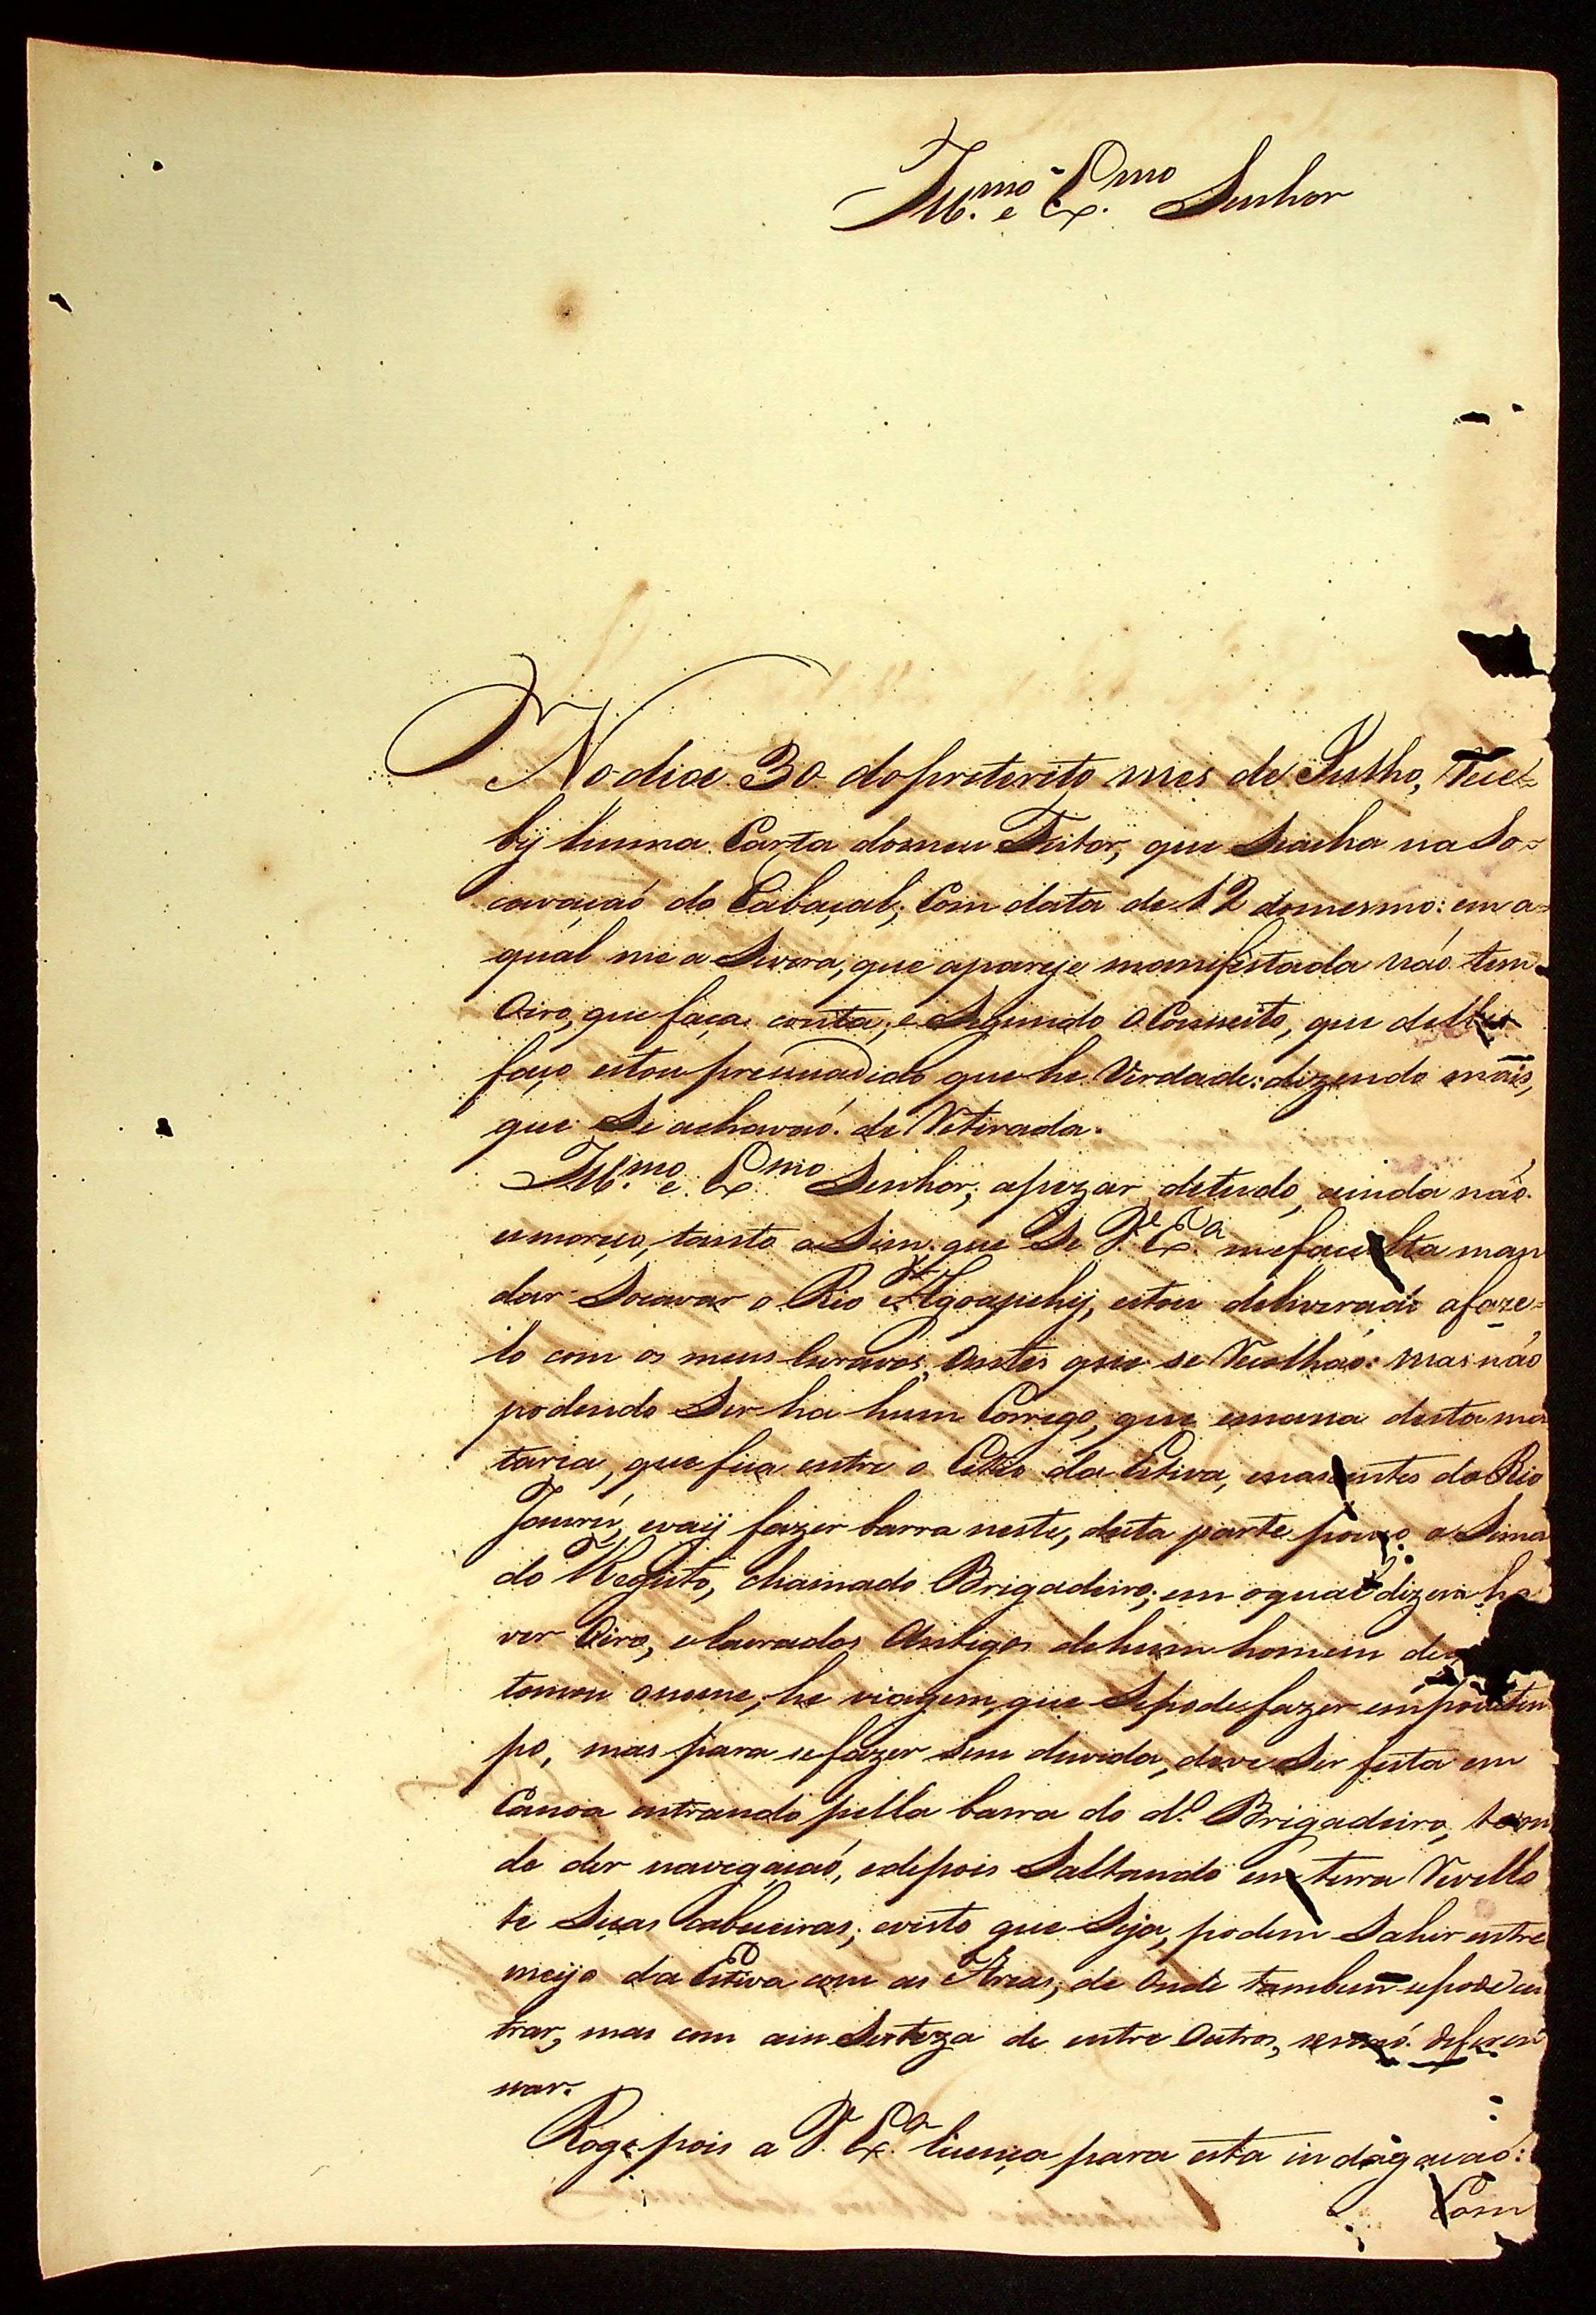 Ill.mo e Ex.mo Senhor
No dia 30 do preterito mes de Julho, Rece-
bý huma Carta do meu Feitor, que Seacha na So-
cavaçaó do Cabaçal, Com data de 12 domesmo: em a-
qual me a Severa, que apareje manifestada naó tem
Oiro, que faça conta, e Segundo o Conseito, que delles
faço estou pressuadido que he Verdade: dizendo mais,
que Se achavaó de Retirada.
Ill.mo e Ex.mo Senhor, apezar detudo, ainda naó
esmoreço, tanto a Sim, que Se V.ª Ex.ª mefaculta man
dar Socavar o Rio Agoapehij, estou deliverado afaze-
lo com os meus escravos, Antes que se Recolhaó: mas naó
podendo Ser ha hum Corrego, que emana desta ma
taria, que fica entre o Citio da Estiva, enascentes do Rio
Jaurú, evaij fazer barra neste, desta parte pouco a Sima
do Registo, chamado Brigadeiro; em oqual dizem ha
ver Oiro, elavrados Antigos dehum homem
tomou onome, he viagem, que Sepode fazer em pouco tem
po, mas para sefazer sem duvida, deve Ser feita em
Canoa entrando pella barra do d.º Brigadeiro, te on
de der navegaçaó, edepois Saltando em terra Revello
te Suas Cabeceiras; evisto que Seja, podem Sahir entre
meijo da Estiva com as Areas, de Onde tambem sepode en
trar, mas com ain Serteza de entre Outros,
nar.
Rogo pois a V. Ex.ª licença para esta indagacaó:
Com